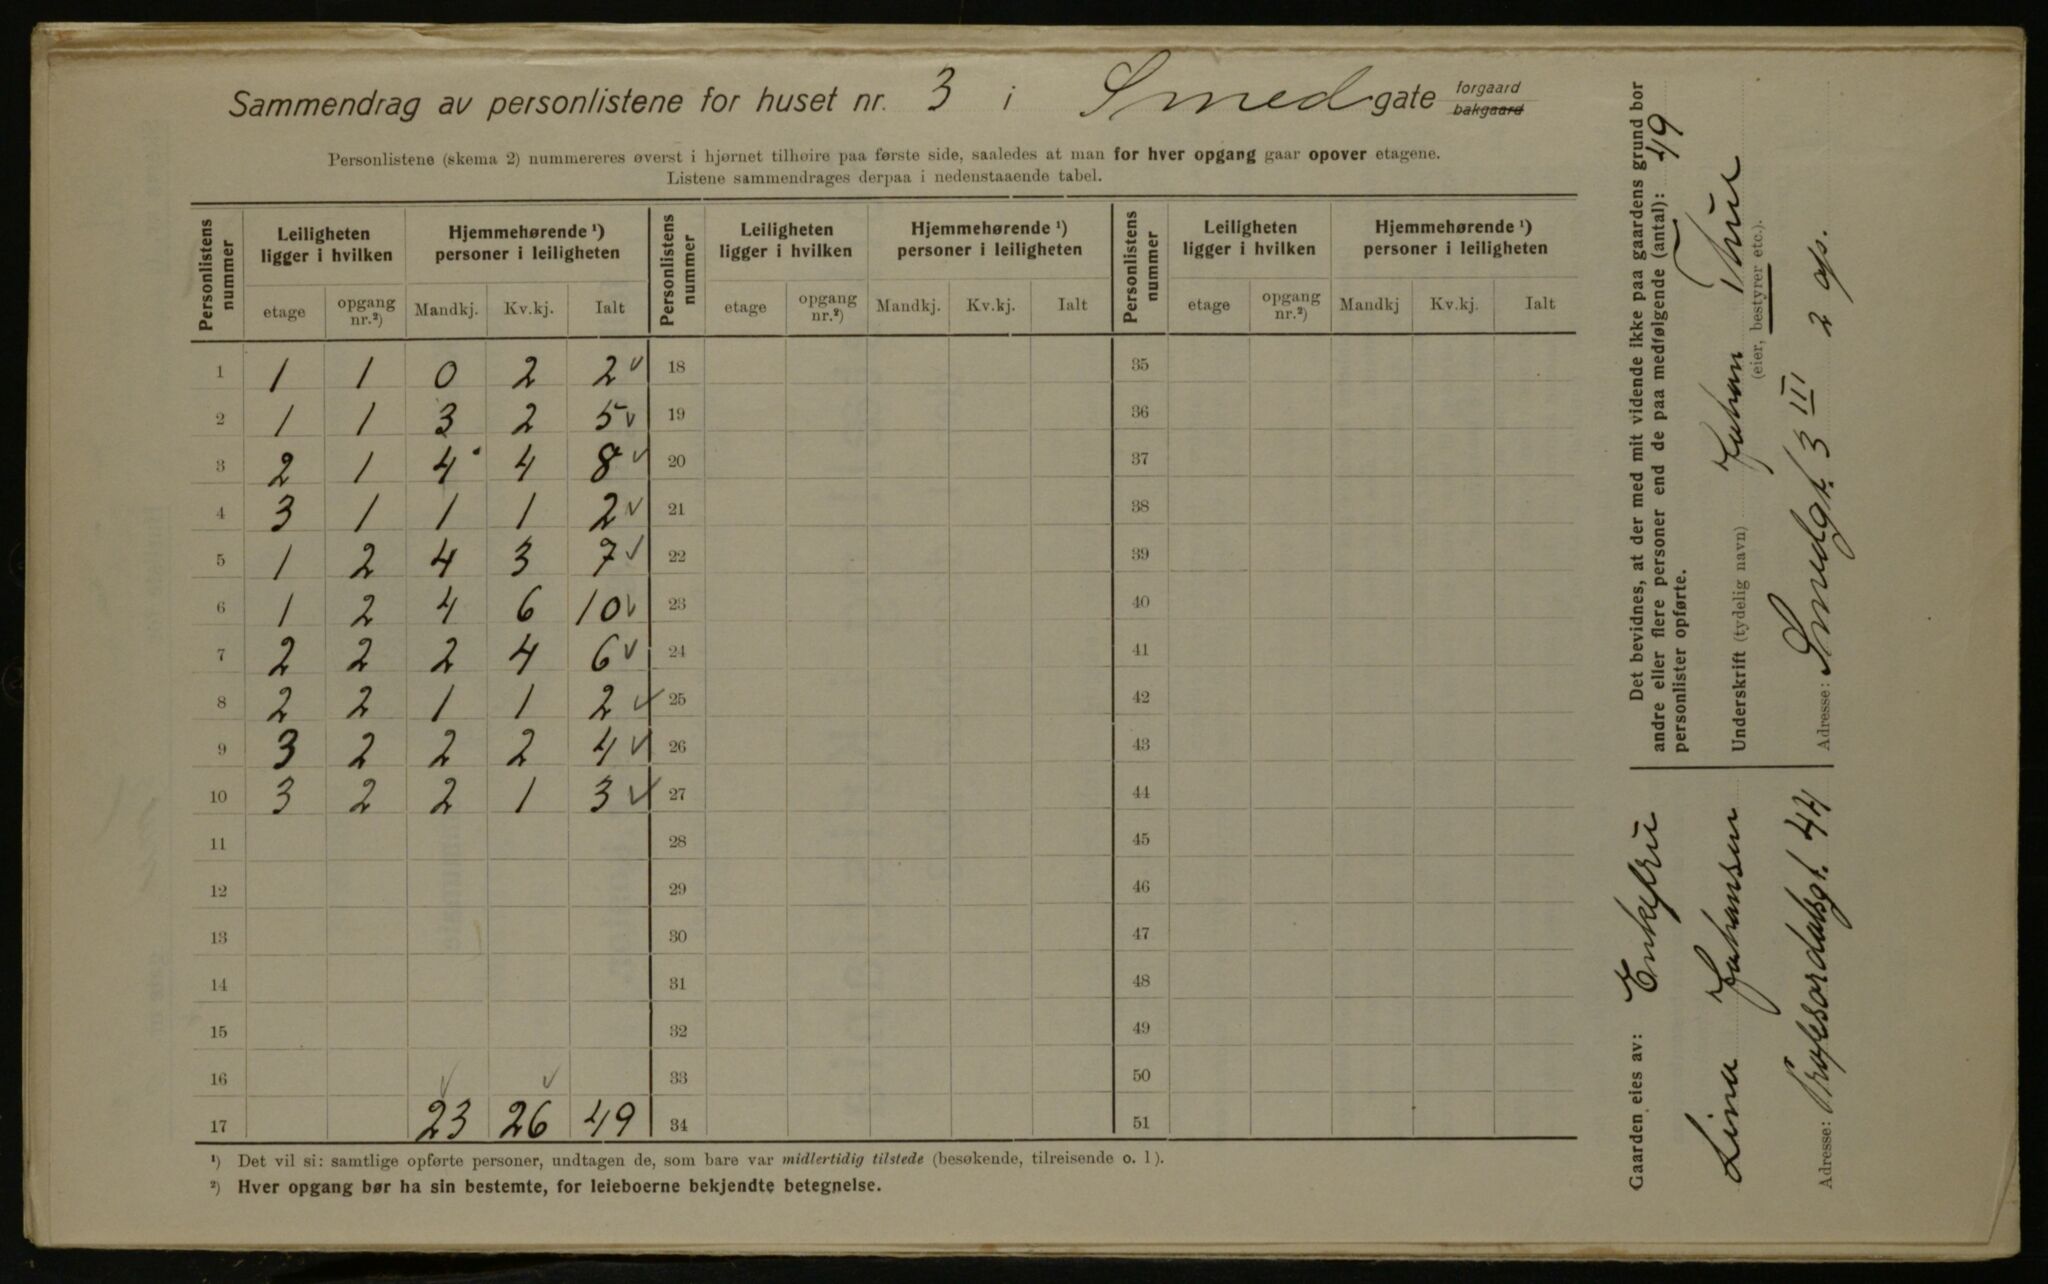 Sammendrag av personlistene for huset nr. 3 i Smedgate forgaard bakgaard
Personlistene (skema 2) nummereres øverst i hjørnet tilhøire paa første side, saaledes at man for hver opgang gaar opover etagene.
Listene sammendrages derpaa i nedenstaaende tabel.
Personlistens nummer | Leiligheten ligger i hvilken | Hjemmehørende ¹) personer i leiligheten | Personlistens nummer | Leiligheten ligger i hvilken | Hjemmehørende ¹) personer i leiligheten | Personlistens nummer | Leiligheten ligger i hvilken | Hjemmehørende ¹) personer i leiligheten
etage | opgang nr.²) | Mandkj. | Kv.kj. | Ialt | etage | opgang nr.²) | Mandkj. | Kv.kj. | Ialt | etage | opgang nr.²) | Mandkj | Kv.kj. | Ialt
1 | 1 | 1 | 0 | 2 | 2 ✓ | 18 | 35
2 | 1 | 1 | 3 | 2 | 5 ✓ | 19 | 36
3 | 2 | 1 | 4 | 4 | 8 ✓ | 20 | 37
4 | 3 | 1 | 1 | 1 | 2 ✓ | 21 | 38
5 | 1 | 2 | 4 | 3 | 7 ✓ | 22 | 39
6 | 1 | 2 | 4 | 6 | 10 ✓ | 23 | 40
7 | 2 | 2 | 2 | 4 | 6 ✓ | 24 | 41
8 | 2 | 2 | 1 | 1 | 2 ✓ | 25 | 42
9 | 3 | 2 | 2 | 2 | 4 ✓ | 26 | 43
10 | 3 | 2 | 2 | 1 | 3 ✓ | 27 | 44
11 | 28 | 45
12 | 29 | 46
13 | 30 | 47
14 | 31 | 48
15 | 32 | 49
16 | ✓ | ✓ | 33 | 50
17 | 23 | 26 | 49 | 34 | 51
¹) Det vil si: samtlige opførte personer, undtagen de, som bare var midlertidig tilstede (besøkende, tilreisende o. l).
²) Hver opgang bør ha sin bestemte, for leieboerne bekjendte betegnelse.
Det bevidnes, at der med mit vidende ikke paa gaardens grund bor
andre eller flere personer end de paa medfølgende (antal): 49
personlister opførte.
Underskrift (tydelig navn) Johan Thue
(eier, bestyrer etc.).
Adresse: Smedgt. 3 III 2 op.
Gaarden eies av: Enkefru
Lina Johansen
Adresse: Profesordalsgt. 44